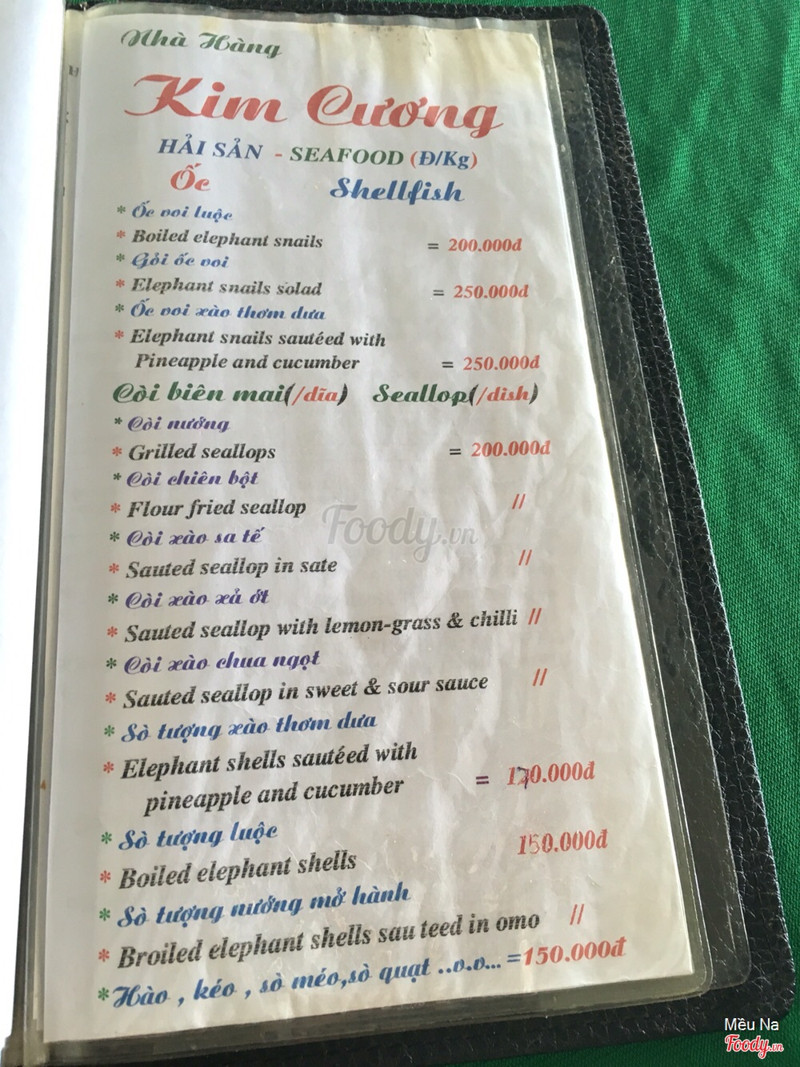 Nhà Hàng
Kim Cương
HẢI SẢN - SEAFOOD (Đ/Kg)
Ốc Shellfish
* Ốc voi luộc
* Boiled elephant snails = 200.000đ
* Gỏi ốc voi
* Elephant snails solad = 250.000đ
* Ốc voi xào thơm dưa
* Elephant snails sautéed with
Pineapple and cucumber = 250.000đ
Còi biên mai(/dĩa) Seallop(/dish)
* Còi nướng
* Grilled seallops = 200.000đ
* Còi chiên bột
* Flour fried seallop //
* Còi xào sa tế
* Sauted seallop in sate //
* Còi xào xả ớt
* Sauted seallop with lemon-grass & chilli //
* Còi xào chua ngọt
* Sauted seallop in sweet & sour sauce //
* Sò tượng xào thơm dưa
* Elephant shells sautéed with
pineapple and cucumber = 170.000đ
* Sò tượng luộc
* Boiled elephant shells 150.000đ
* Sò tượng nướng mở hành
* Broiled elephant shells sau teed in omo //
*Hào , kéo , sò méo,sò quạt ..v.v... =150.000đ
Foody.vn
Mều Na
Foody.vn